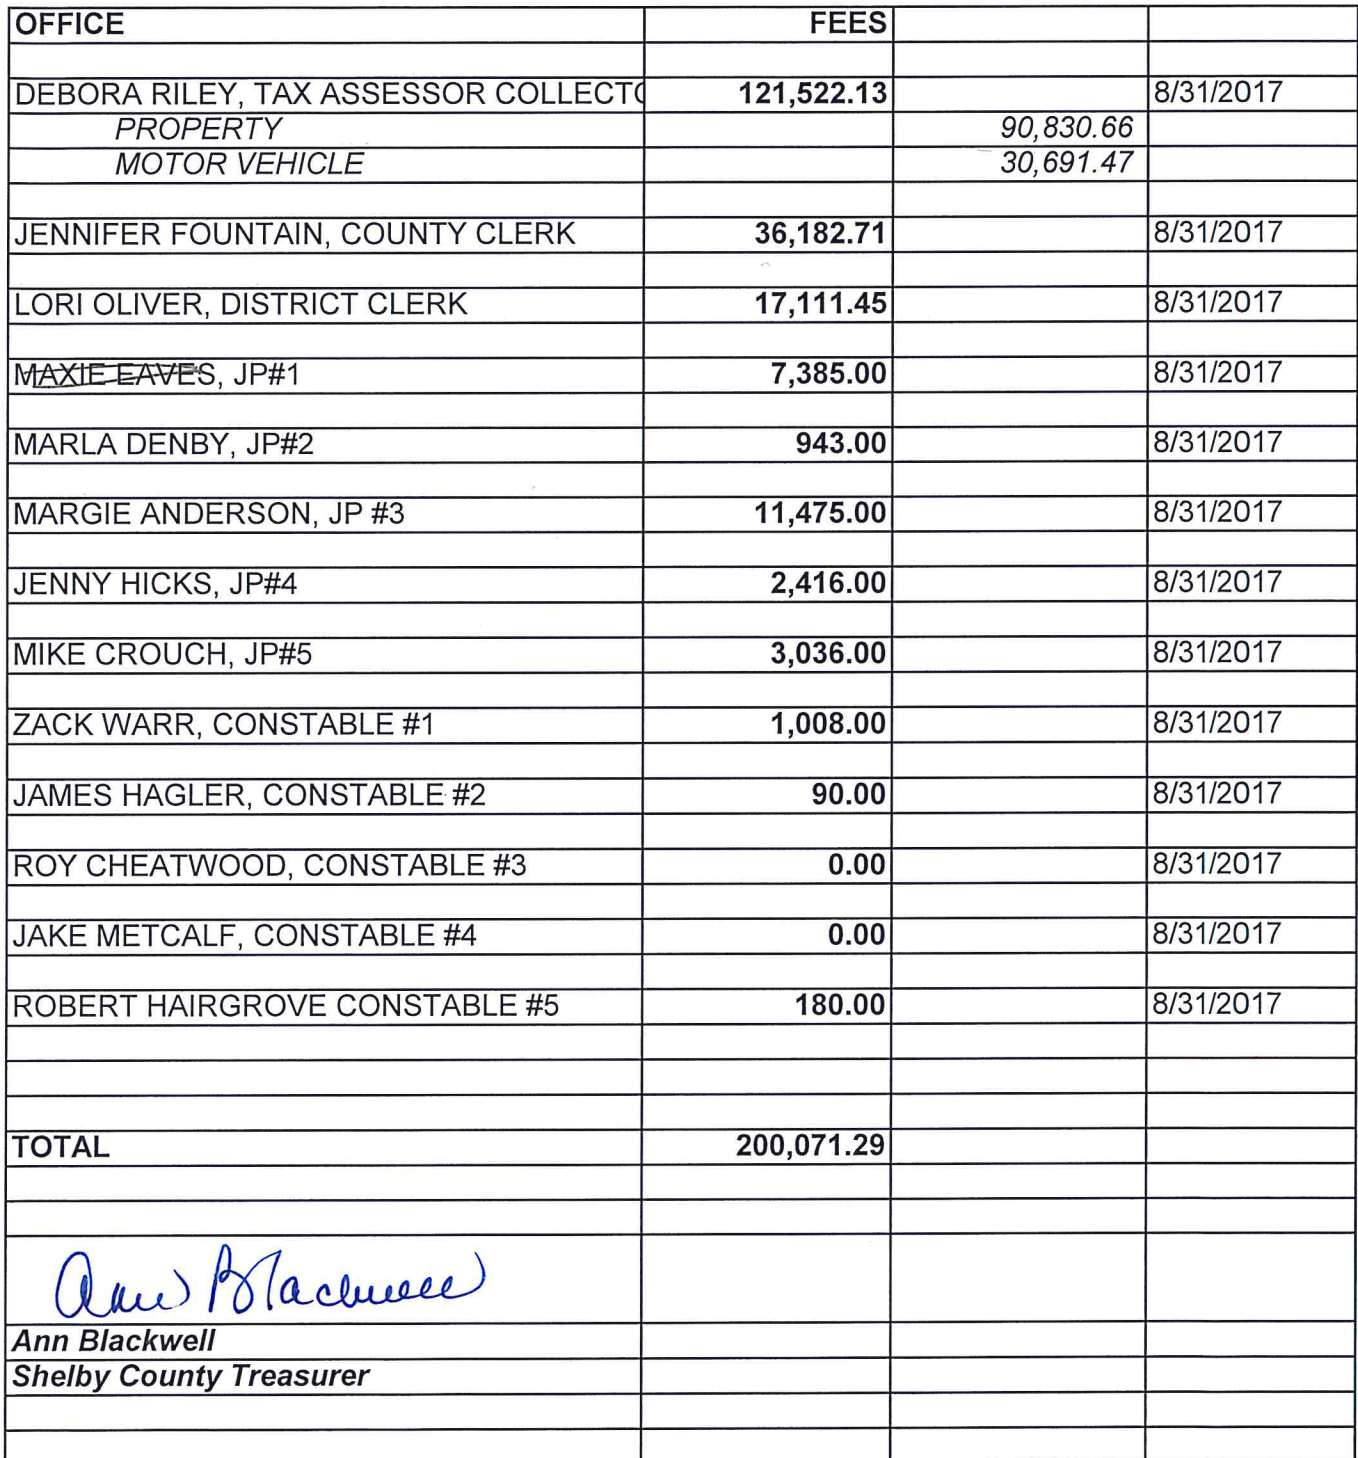 OFFICE FEES
DEBORA RILEY, TAX ASSESSOR COLLECTO 121,522.13 8/31/2017
PROPERTY 90,830.66
MOTOR VEHICLE 30,691.47
JENNIFER FOUNTAIN, COUNTY CLERK 36,182.71 8/31/2017
LORI OLIVER, DISTRICT CLERK 17,111.45 8/31/2017
MAXIE EAVES, JP#1 7,385.00 8/31/2017
MARLA DENBY, JP#2 943.00 8/31/2017
MARGIE ANDERSON, JP #3 11,475.00 8/31/2017
JENNY HICKS, JP#4 2,416.00 8/31/2017
MIKE CROUCH, JP#5 3,036.00 8/31/2017
ZACK WARR, CONSTABLE #1 1,008.00 8/31/2017
JAMES HAGLER, CONSTABLE #2 90.00 8/31/2017
ROY CHEATWOOD, CONSTABLE #3 0.00 8/31/2017
JAKE METCALF, CONSTABLE #4 0.00 8/31/2017
ROBERT HAIRGROVE CONSTABLE #5 180.00 8/31/2017
TOTAL 200,071.29
Ann Blackwell
Ann Blackwell
Shelby County Treasurer